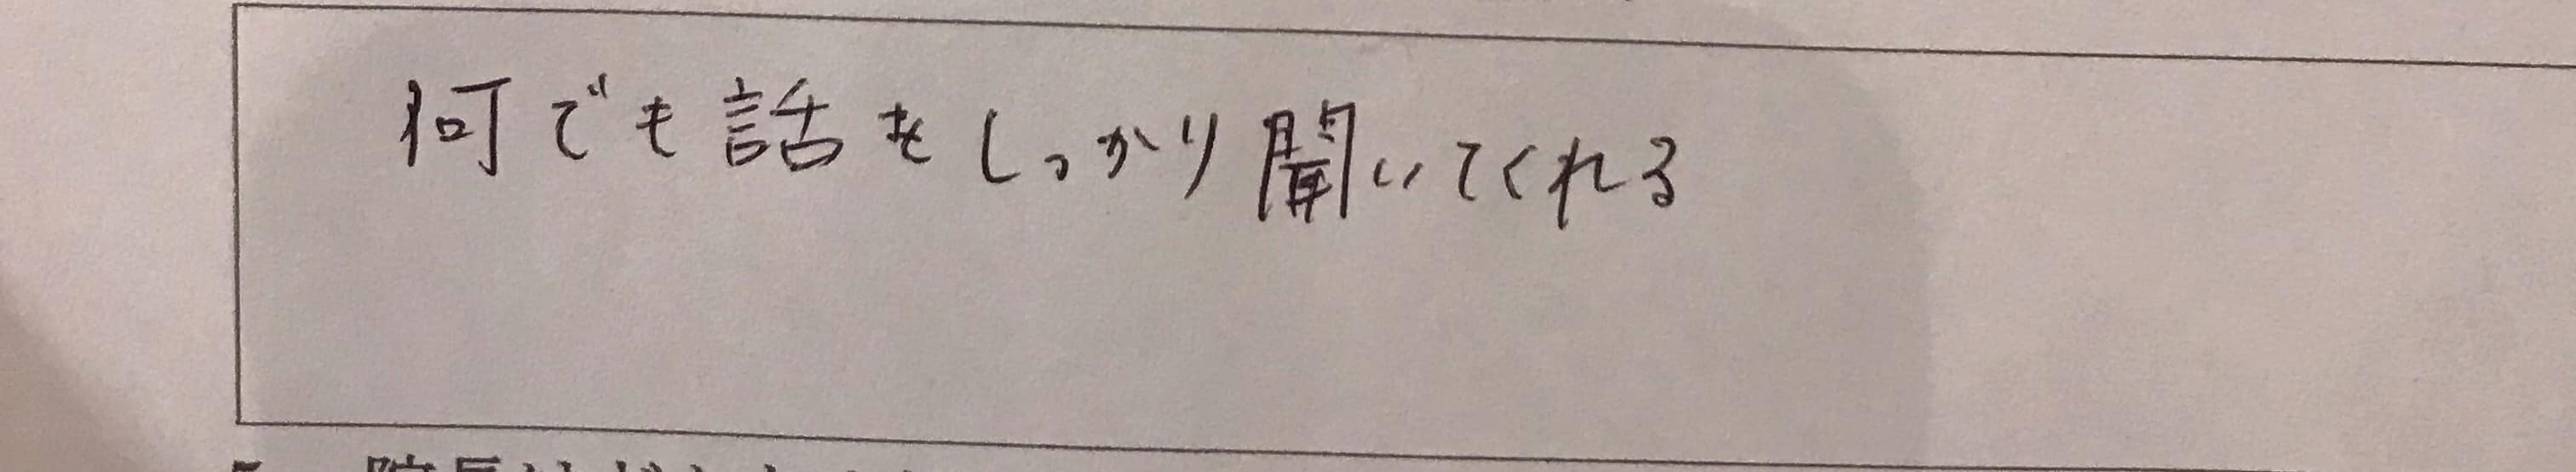 何でも話をしっかり聞いてくれる